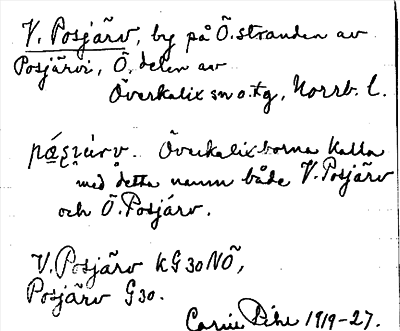 V. Posjärv, by på Ö. stranden av
Posjärvi, Ö. delen av
Överkalix sn o. tg, Norrb. l.
Överkalixborna kalla
med detta namn både V. Posjärv
och Ö. Posjärv.
V. Posjärv KG 30 NÖ,
Posjärv G 30.
Carin Pihl 1919-27.